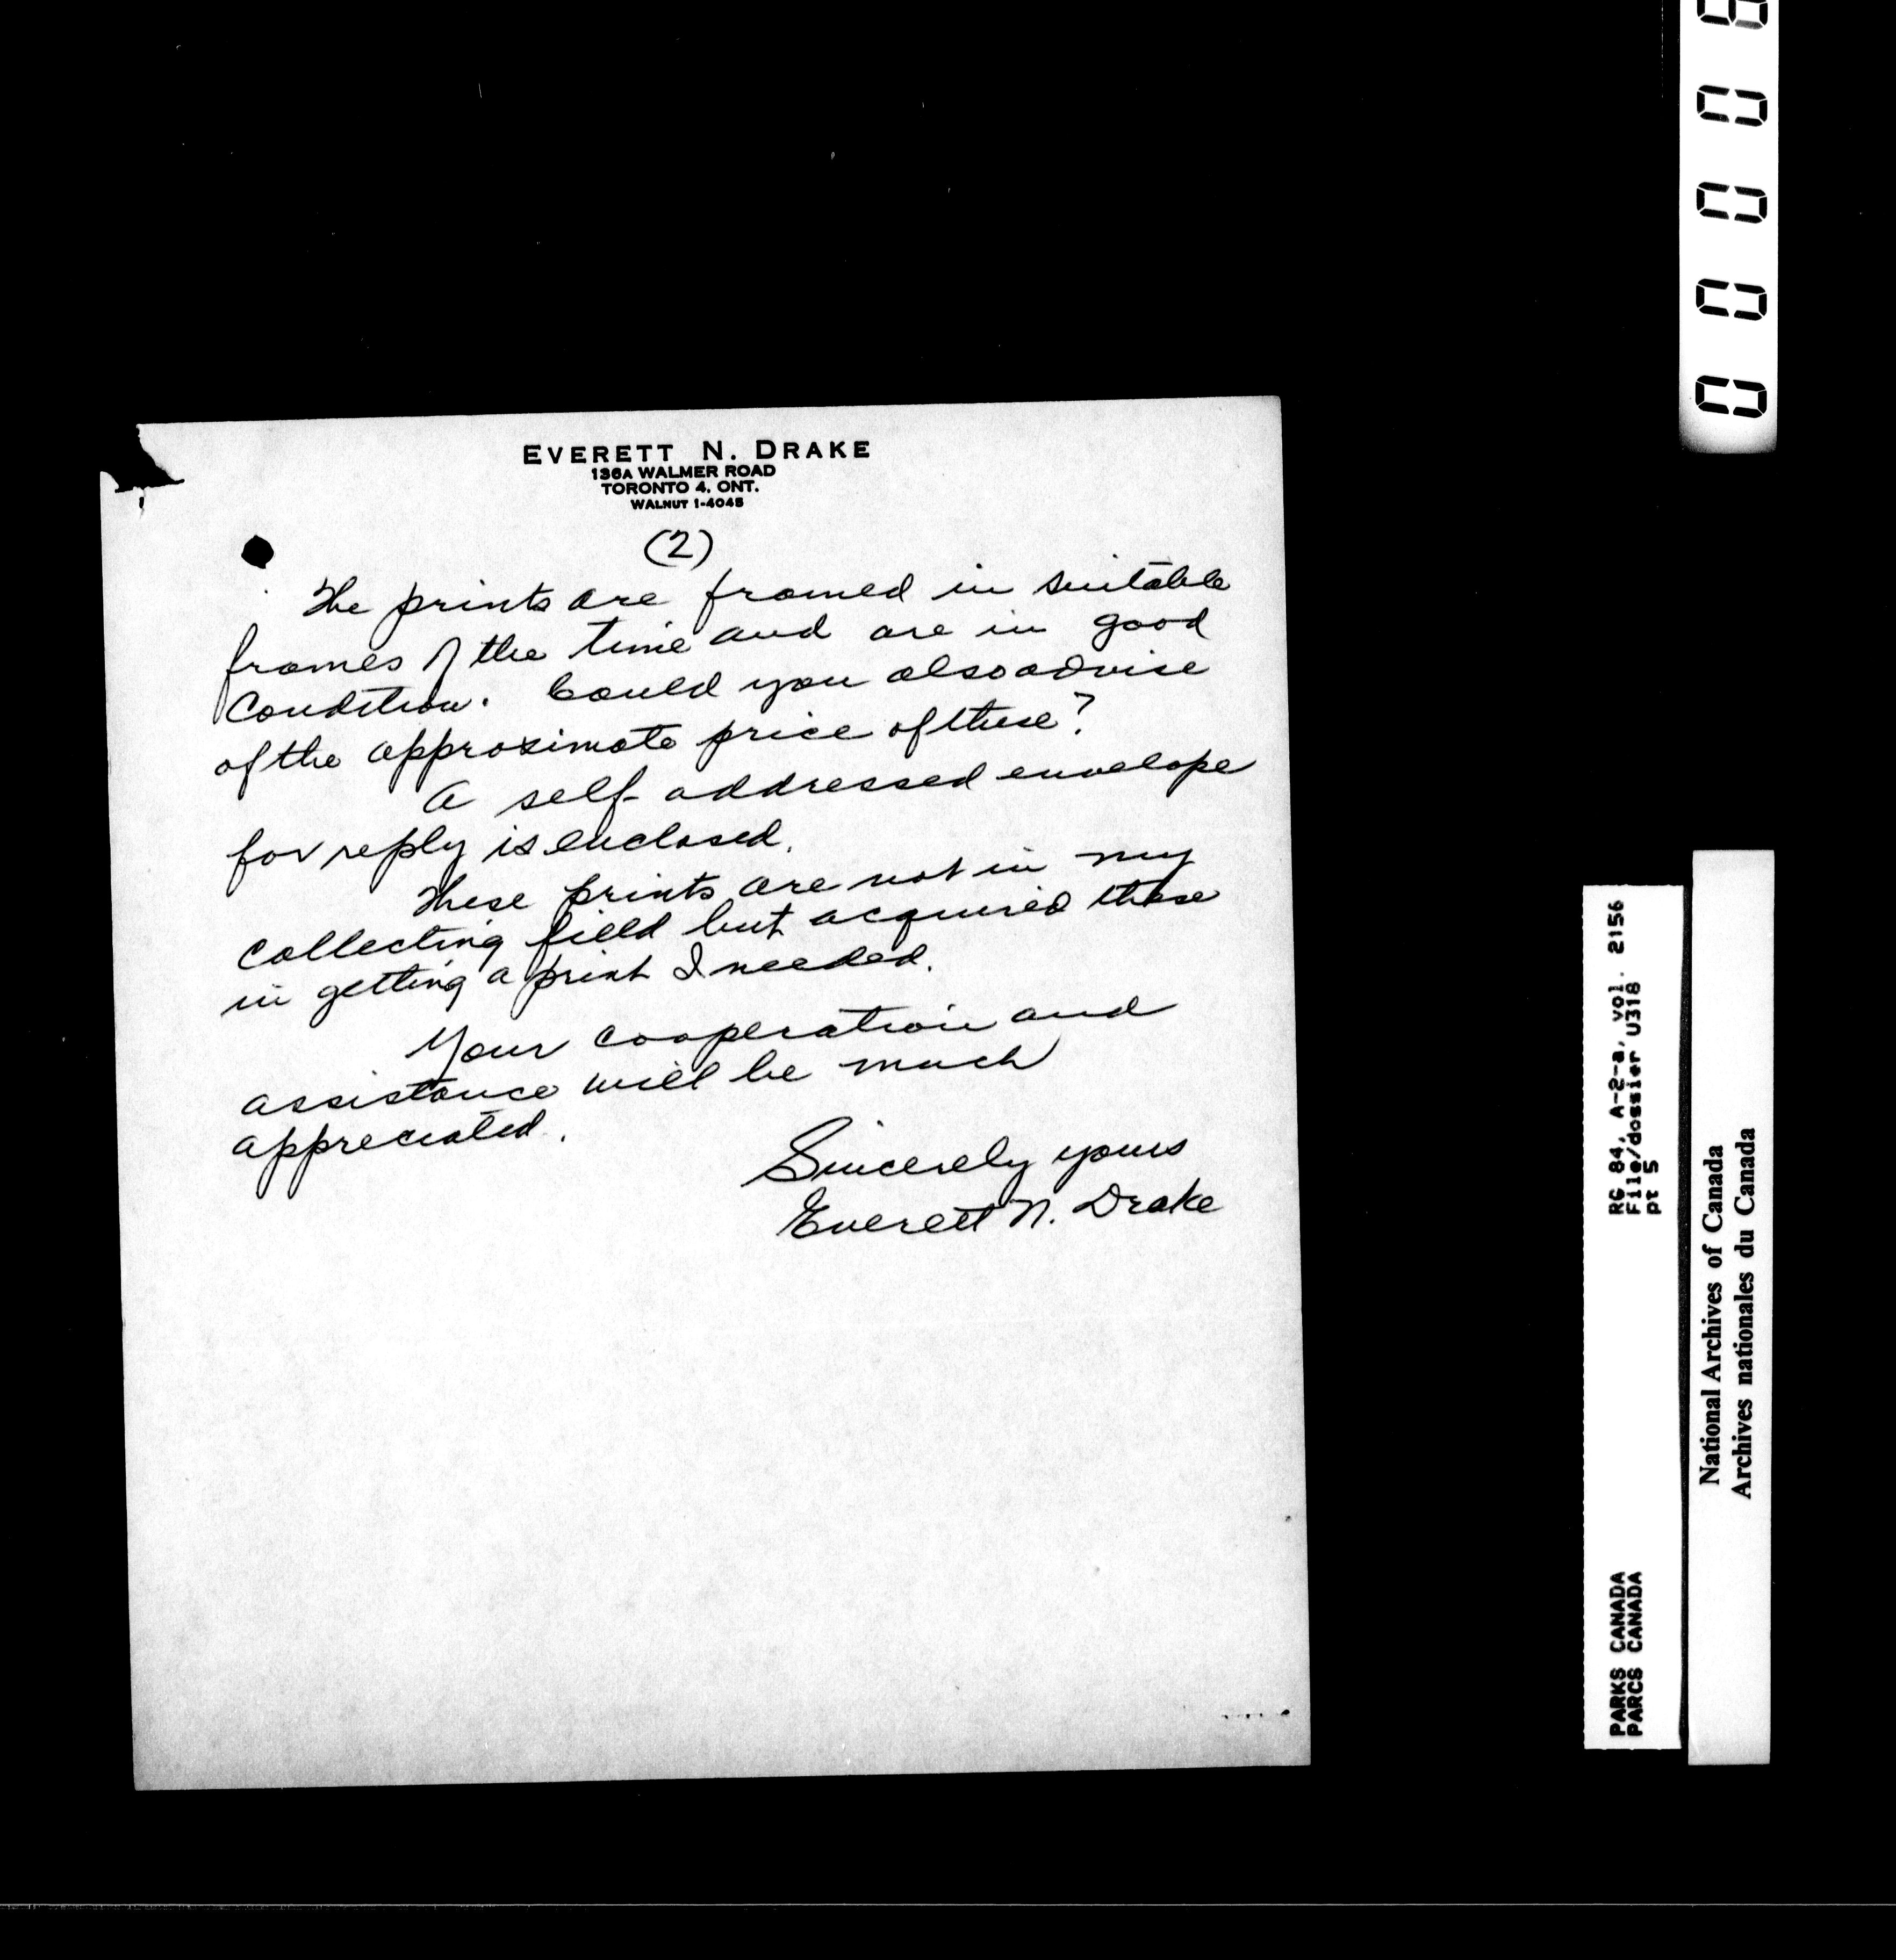 EVERETT N. DRAKE
136A WALMER ROAD
TORONTO 4, ONT.
WALNUT 1-4045
(2)
The prints are framed in suitable
frames of the time and are in good
condition. Could you also advise
of the approximate price of these?
A self-addressed envelope
for reply is enclosed.
These prints are not in my
collecting field but acquired these
in getting a print I needed.
Your cooperation and
assistance will be much
appreciated.
Sincerely yours
Everett N. Drake
RG 84, A-2-a, vol. 2156
File/dossier U318
pt 5
PARKS CANADA
PARCS CANADA
National Archives of Canada
Archives nationales du Canada
0 0 0 0